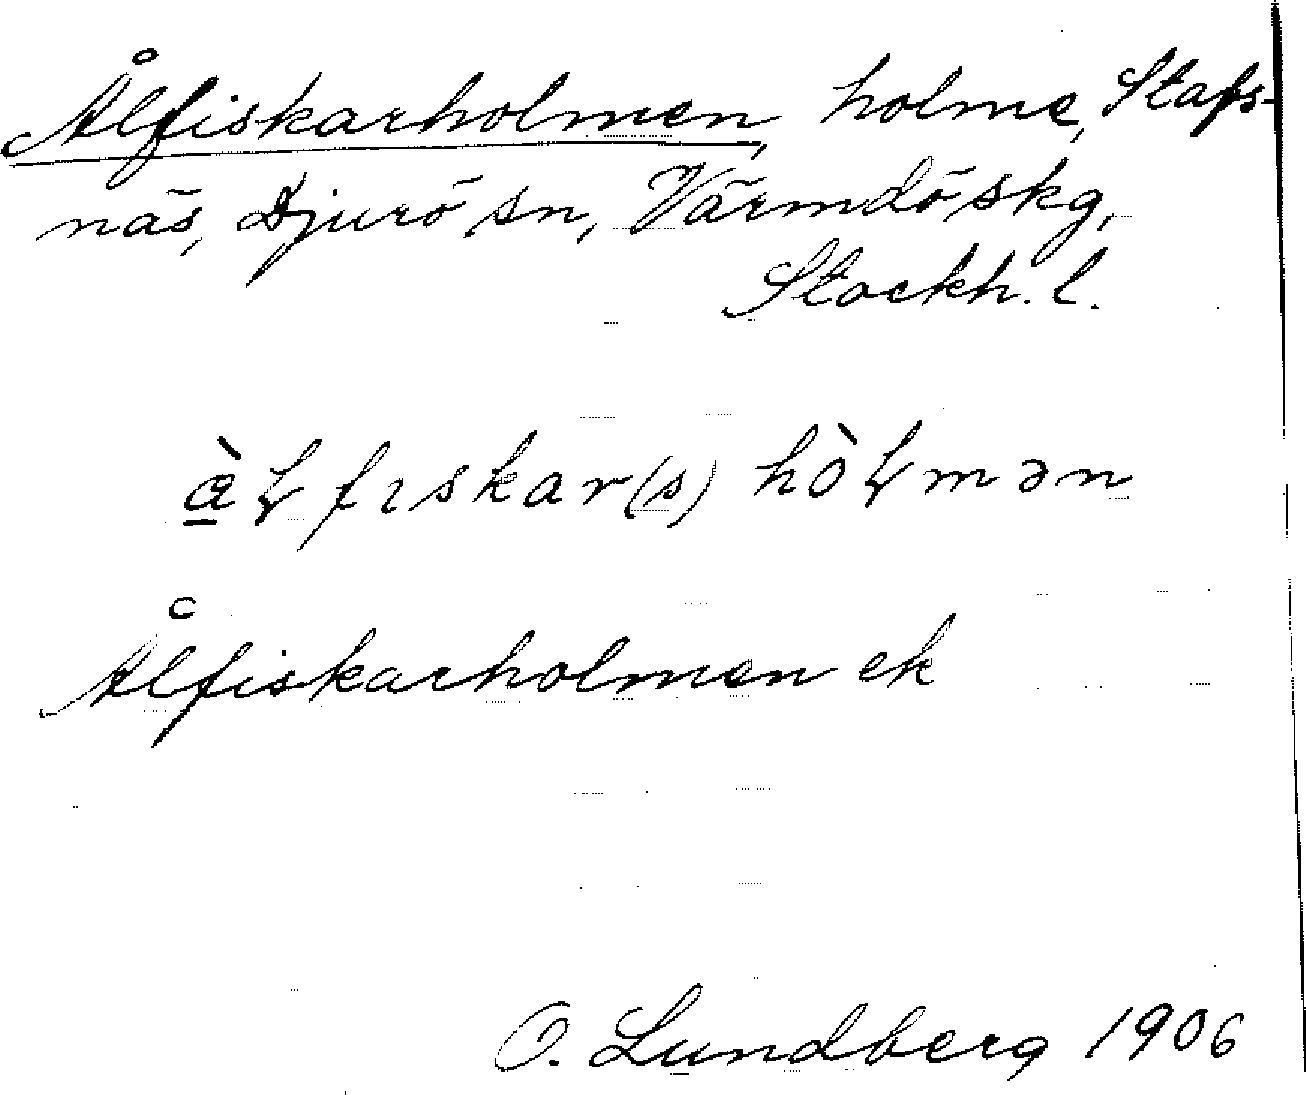 Ålfiskarholmen, holme, Stafs-
näs, Djurö sn, Värmdö skg,
Stockh. l.
æ̱̀ɫfıskar(s) hòɫmən
Ålfiskarholmen ek
O. Lundberg 1906